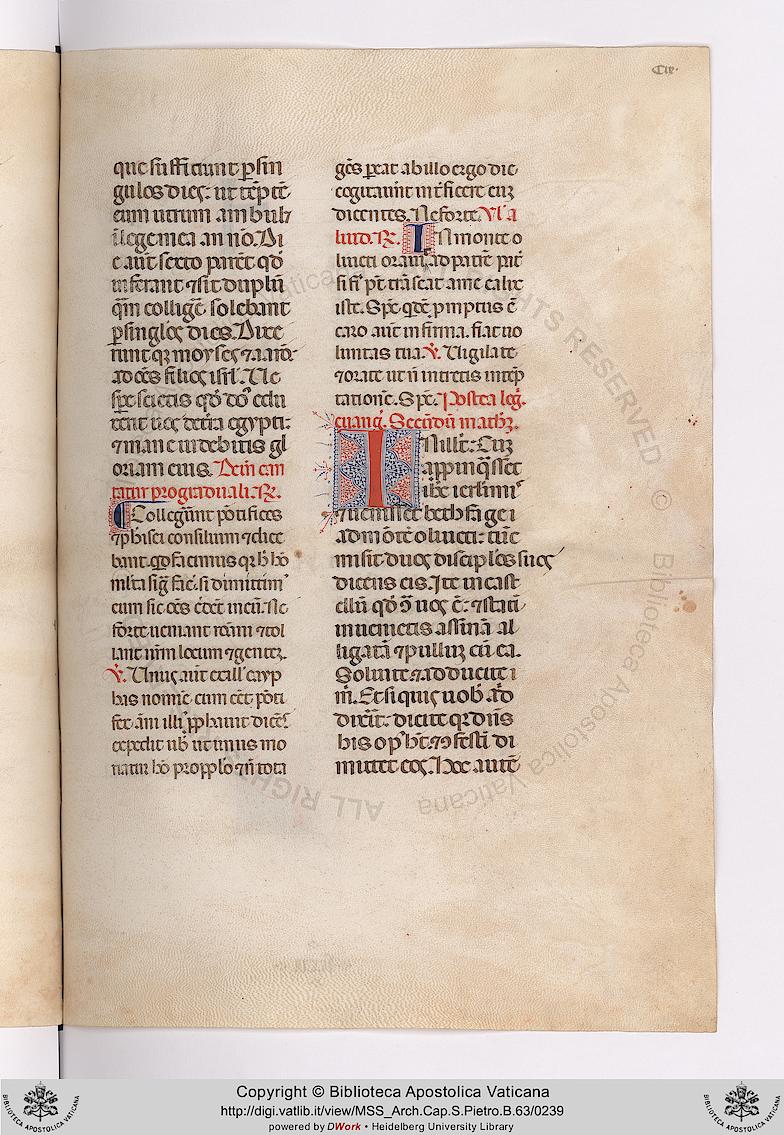 Cix.
que sufficiunt ꝑ sin
gulos dies: ut tēptē
eum utrum ambulꝫ
ī lege mea an nō. Di
e aūt sexto parēt qđ
inferant ⁊ sit duplū
q̄m colligē solebant
ꝑ singłos dies. Dixe
runtqꝫ moyses ⁊ aarō
ad oēs filios isrł. Ue
spe scietis qđ dōs edu
xerit uos de t̄ra egypti:
⁊ mane uidebitis gl
oriam eius. Dein can
tatur pro graduali. ℟.
Collegūnt pōtifices
⁊ pharisei consilium ⁊ dice
bant. qđ facimus qꝛ h̄ hō
mlta siḡ fac̄. si dimittim᾽
eum sic oēs cr̄dēt in eū. Ne
forte ueniant roāni ⁊ tol
lant nr̄m locum ⁊ gentē.
℣. Unus aūt ex ill᾽ cayp
has nomine cum eēt pōti
fex āni illi᾽ ꝓphauit dicēs
expedit uob᾽ ut unus mo
riatur hō pro pplo ⁊ n̄ tota
gēs ꝑeat ab illo ergo die
cogitauīnt int̄ficere euꝫ
dicentes. Ne forte. Vl᾽ a
liud. ℟. In monte o
liueti orauit ad patrē pat̄
si fi᾽ pōt trāseat a me calix
iste. Sps qđē promptus ē
caro aūt infirma. fiat uo
luntas tua ℣. Uigilate
⁊ orate ut n̄ intretis in tēp
tationē. Sps. Postea leg᷑.
euang᷑. Secundū mathꝫ.
In illo t᷑. Cuꝫ
appinq̄sset
ihc ierłimis
⁊ uenisset bethfage i
ad mōtē oliueti: tūc
misit duos discipłos suos
dicens eis. Ite in cast
ellū qđ ꝯ uos ē: ⁊ stati᷑
inuenietis asinā al
ligatā ⁊ pulluꝫ cū ea.
Soluite ⁊ adducite i
m̄. Et si quis uob᾽ ad
dixīt: dicite qꝛ dn̄s
his op᾽ ht᷑ ⁊ ꝯfestī di
mittet eos. Hoc autē
ALL RIGHTS RESERVED
© Biblioteca Apostolica Vaticana
Copyright © Biblioteca Apostolica Vaticana
http://digi.vatlib.it/view/MSS_Arch.Cap.S.Pietro.B.63/0239
powered by DWork • Heidelberg University Library
BIBLIOTECA APOSTOLICA VATICANA
BIBLIOTECA APOSTOLICA VATICANA